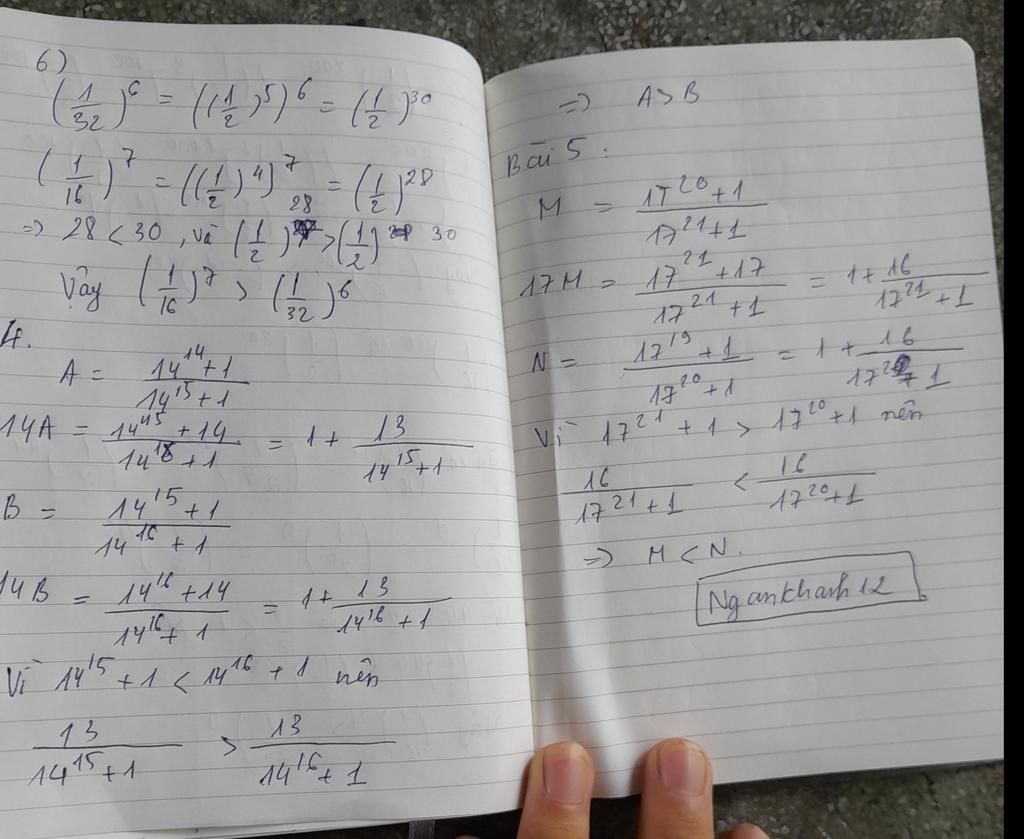 6)
(1/32)^6 = ((1/2)^5)^6 = (1/2)^30
(1/16)^7 = ((1/2)^4)^7 = (1/2)^28
=> 28 < 30, và (1/2)^28 > (1/2)^30
Vậy (1/16)^7 > (1/32)^6
4.
A = (14^14 + 1)/(14^15 + 1)
14A = (14^15 + 14)/(14^15 + 1) = 1 + 13/(14^15 + 1)
B = (14^15 + 1)/(14^16 + 1)
14B = (14^16 + 14)/(14^16 + 1) = 1 + 13/(14^16 + 1)
Vì 14^15 + 1 < 14^16 + 1 nên
13/(14^15 + 1) > 13/(14^16 + 1)
=> A > B
Bài 5:
M = (17^20 + 1)/(17^21 + 1)
17M = (17^21 + 17)/(17^21 + 1) = 1 + 16/(17^21 + 1)
N = (17^19 + 1)/(17^20 + 1) = 1 + 16/(17^20 + 1)
Vì 17^21 + 1 > 17^20 + 1 nên
16/(17^21 + 1) < 16/(17^20 + 1)
=> M < N.
Ngankhanh12